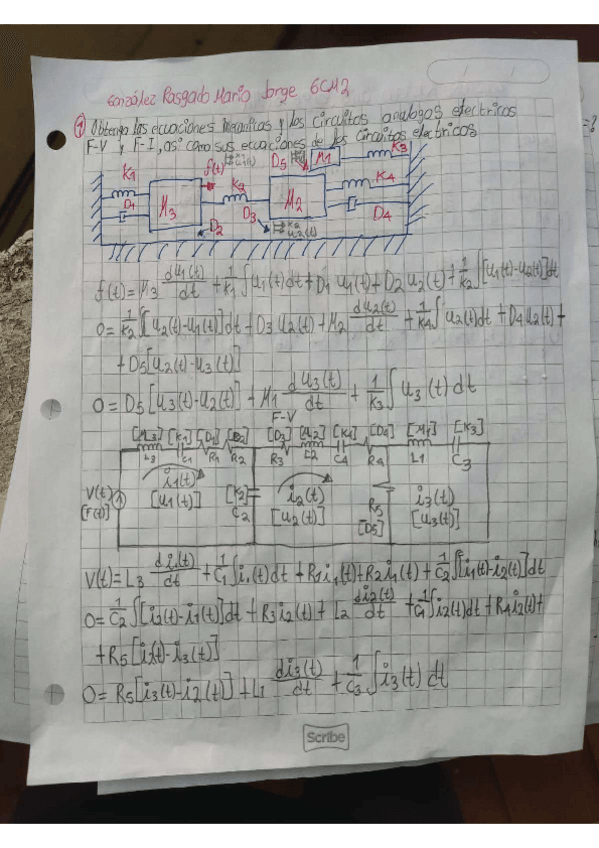 González Rasgado Mario Jorge 6CM2
① Obtenga las ecuaciones mecánicas y los circuitos analogos electricos
F-V y F-I, asi como sus ecuaciones de los circuitos electricos
K1 D1 M3 f(t) u1(t) K2 D2 D3 M2 u2(t) D5 M1 K3 K4 D4
f(t) = M3 du1(t)/dt + 1/K1 ∫u1(t)dt + D1 u1(t) + D2 u2(t) + 1/K2 ∫[u1(t)-u2(t)]dt
0 = 1/K2 ∫[u2(t)-u1(t)]dt + D3 u2(t) + M2 du2(t)/dt + 1/K4 ∫u2(t)dt + D4 u2(t) +
+ D5[u2(t)-u3(t)]
0 = D5[u3(t)-u2(t)] + M1 du3(t)/dt + 1/K3 ∫u3(t)dt
F-V
[M3] [K1] [D1] [D2] [D3] [M2] [K4] [D4] [M1] [K3]
L3 C1 R1 R2 R3 L2 C4 R4 L1 C3
V(t) [F(t)] i1(t) [u1(t)] [K2] C2 i2(t) [u2(t)] R5 [D5] i3(t) [u3(t)]
V(t) = L3 di1(t)/dt + 1/C1 ∫i1(t)dt + R1i1(t) + R2i1(t) + 1/C2 ∫[i1(t)-i2(t)]dt
0 = 1/C2 ∫[i2(t)-i1(t)]dt + R3i2(t) + L2 di2(t)/dt + 1/C4 ∫i2(t)dt + R4i2(t) +
+ R5[i2(t)-i3(t)]
0 = R5[i3(t)-i2(t)] + L1 di3(t)/dt + 1/C3 ∫i3(t) dt
Scribe